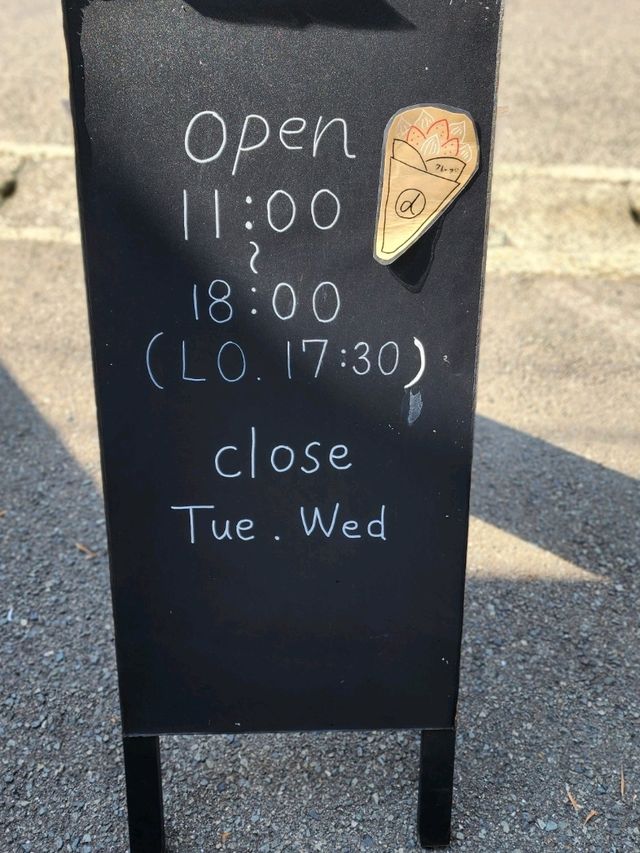 open
11:00
~
18:00
(LO. 17:30)
close
Tue. Wed
クレープ
d